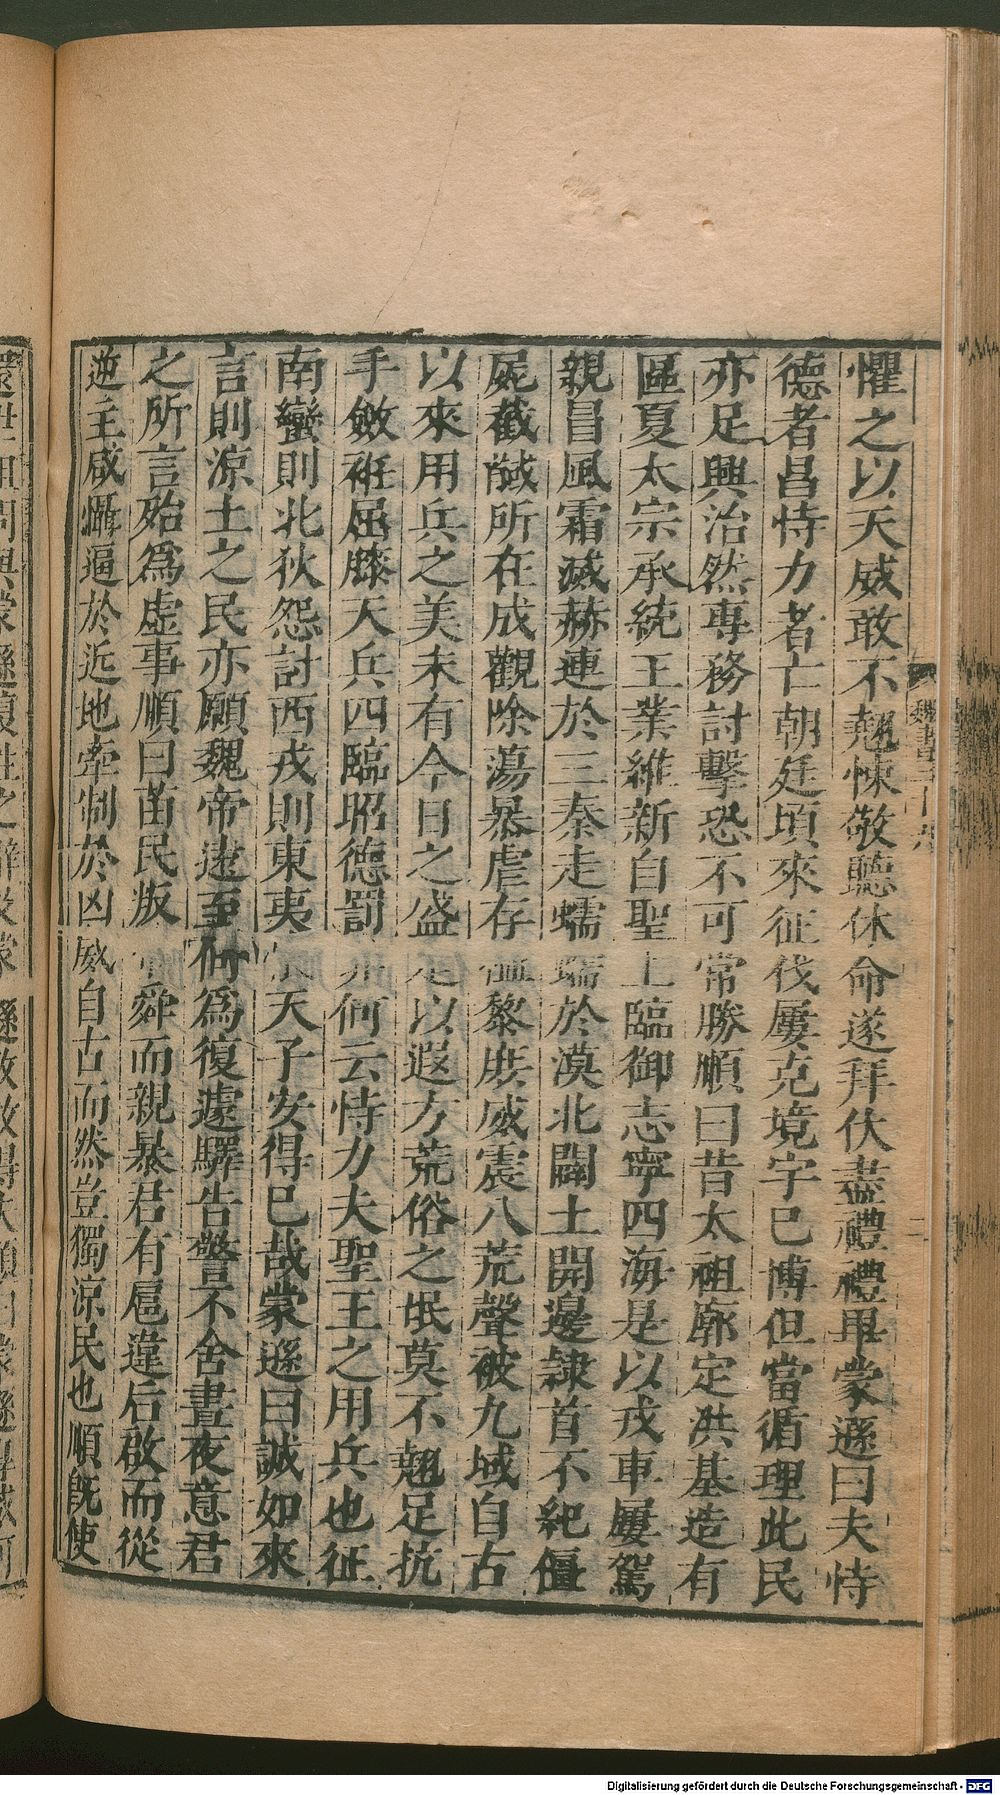 懼之以天威敢不翹悚敬聽休命遂拜伏盡禮禮畢蒙遜曰夫恃
德者昌恃力者亡朝廷頃來征伐屢克境宇已博但當循理此民
亦足興治然專務討擊恐不可常勝順曰昔太祖廓定洪基造有
區夏太宗承統王業維新自聖上臨御志寧四海是以戎車屢駕
親冒風霜滅赫連於三秦走蠕蠕於漠北闢土開邊隸首不紀僵
屍截馘所在成觀除蕩暴虐存恤黎庶威震八荒聲被九域自古
以來用兵之美未有今日之盛是以遐方荒俗之氓莫不翹足抗
手斂袵屈膝天兵四臨昭德罰罪何云恃力夫聖王之用兵也征
南蠻則北狄怨討西戎則東夷恨天子安得已哉蒙遜曰誠如來
言則涼土之民亦願魏帝遠至何為復遽驛告警不舍晝夜意君
之所言殆為虛事順曰苗民叛帝舜而親暴君有扈違后啟而從
逆主咸懾逼於近地牽制於凶威自古而然豈獨涼民也順既使
魏書三十六
二
Digitalisierung gefördert durch die Deutsche Forschungsgemeinschaft - DFG